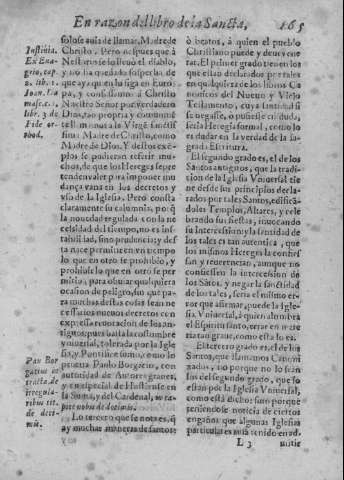 En razon del libro de la Sancta, 165
Justinia.
Ex Eua
grio, cap.
2. lib. 1.
Joan. Da
masc. c.
libr. 3. de
Fide or
thod.
solo se aula de llamar, Madre de
Christo. Pero despues que à
Nestorio se lo lleuó el diablo,
y no ha quedado sospecha de
que aya quien la siga en Euro-
pa, y confessamos á Christo
Nuestro Señor por verdadero
Dios, tan propria y comunmen-
te llamamos a la Virgē santissi-
ma Madre de Christo, como
Madre de Dios. Y destos exēm-
plos se pudieran referir mu-
chos, de que los Hereges se pre
tenden valer para imponer mu
dança vana en los decretos y
vso de la Iglesia. Pero consta
claramente su calumnia, porq̄
la nouedad regulada con la ne
cessidad del tiempo, no es ins-
tabilidad, sino prudencia; y des
ta nace permitirse en vn tiempo
lo que en otro se prohibio, y
prohibirse lo que en otro se per
mitio; para obuiar qualquiera
ocasion de peligro, sin que pa-
ra muchas destas cosas sean ne
cessarios nueuos decretos con
expressa reuocacion de los an-
tiguos; pues basta la costumbre
vniuersal, tolerada por la Igle
sia, y Pontifice sumo, como lo
prueua Paulo Borgasio, con
autoridad de Autores graues,
y en especial de Hostiense en
la Suma, y del Cardenal, in ca-
pite nobis de decimis.
Lo tercero que se nota es, q̄
ay muchas maneras de santos
Pau Bor
gasius in
tracta. de
irregula-
ribus tit.
de deci-
mis.
ò beatos, á quien el pueblo
Christiano puede y deue ve ne
rar. El primer grado tienen los
que estan declarados por tales
en qualquiera de los libros Ca
nonicos del Nueuo y Viejo
Testamento, cuya santidad si
se negasse, o pusiesse en duda,
seria Heregia formal, como lo
es dudar de la verdad de la sa-
grada Escritura.
El segundo grado es, el de los
Santos antiguos, que la tradi-
cion de la Iglesia Vniuersal tie
ne desde sus principios decla-
rados por tales Santos, edificā
doles Templos, Altares, y cele
brando sus fiestas, inuocando
su intercession y la santidad de
los tales es tan autentica, que
los mismos Hereges la confies
san y reuerencian, aunque no
confiessen la intercession de
los Sātos, y negar la santidad
de los tales, seria el mismo er-
ror que afirmar, puede la Igle-
sia Vniuersal, á quien alumbra
el Espiritu santo, errar en mate
ria tan graue, como esta lo es.
El tercero grado es, el de los
Santos, que llamamos Canoni
zados, no porque no lo sean
los del segundo grado, que lo
estan por la Iglesia Vniuersal,
como està dicho; sino porque
teniendose noticia de ciertos
engaños que algunas Iglesias
particulares auiā tenido en ad-
L 3 mitir